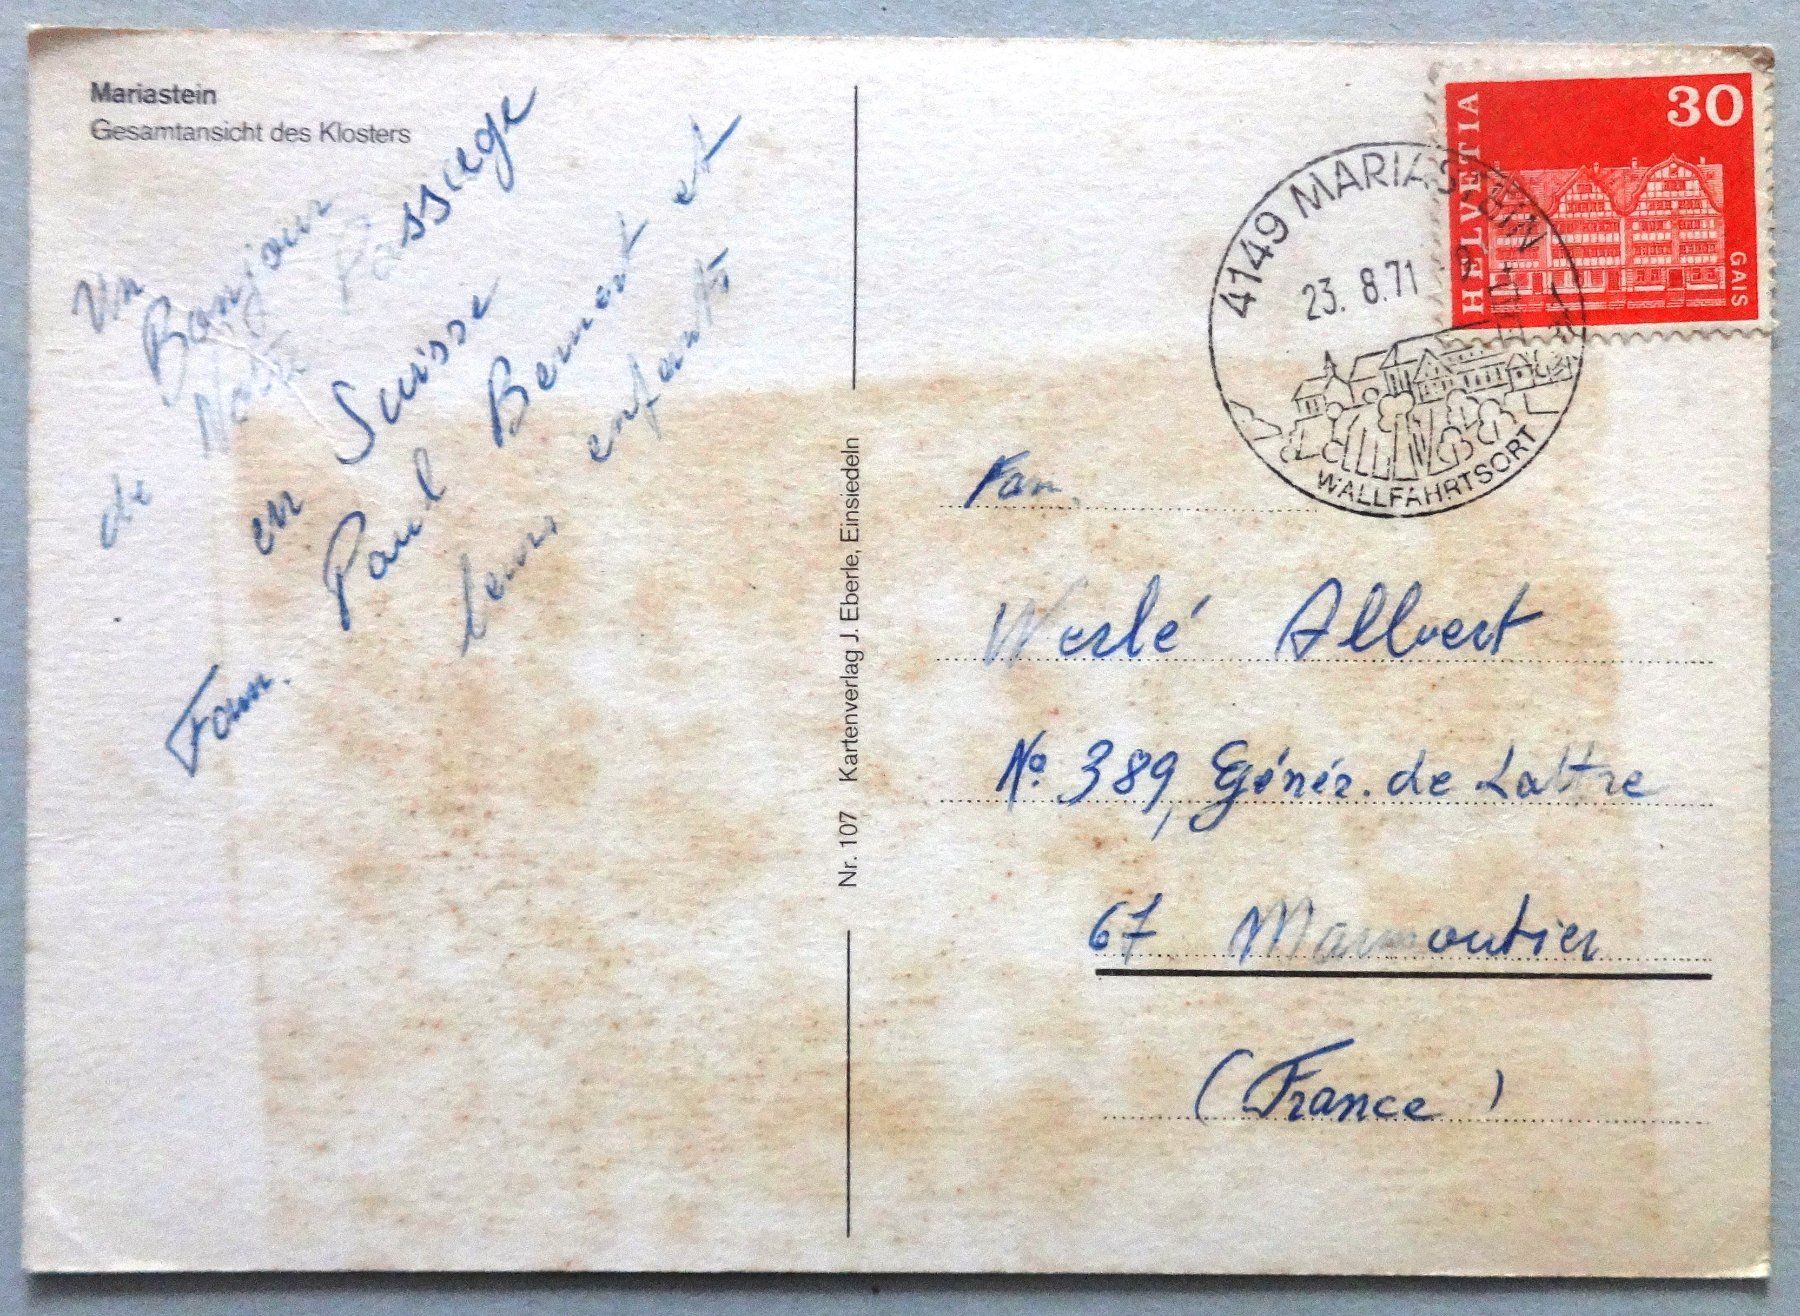 Mariastein
Gesamtansicht des Klosters
Un Bonjour
de Passage
en Suisse
Fam. Paul et
leurs enfants
Nr. 107 Kartenverlag J. Eberle, Einsiedeln
HELVETIA
30
GAIS
4149 MARIASTEIN
23. 8.71
WALLFAHRTSORT
Fam.
Werlé Albert
No. 389, Génér. de Lattre
67 Marmoutier
(France)